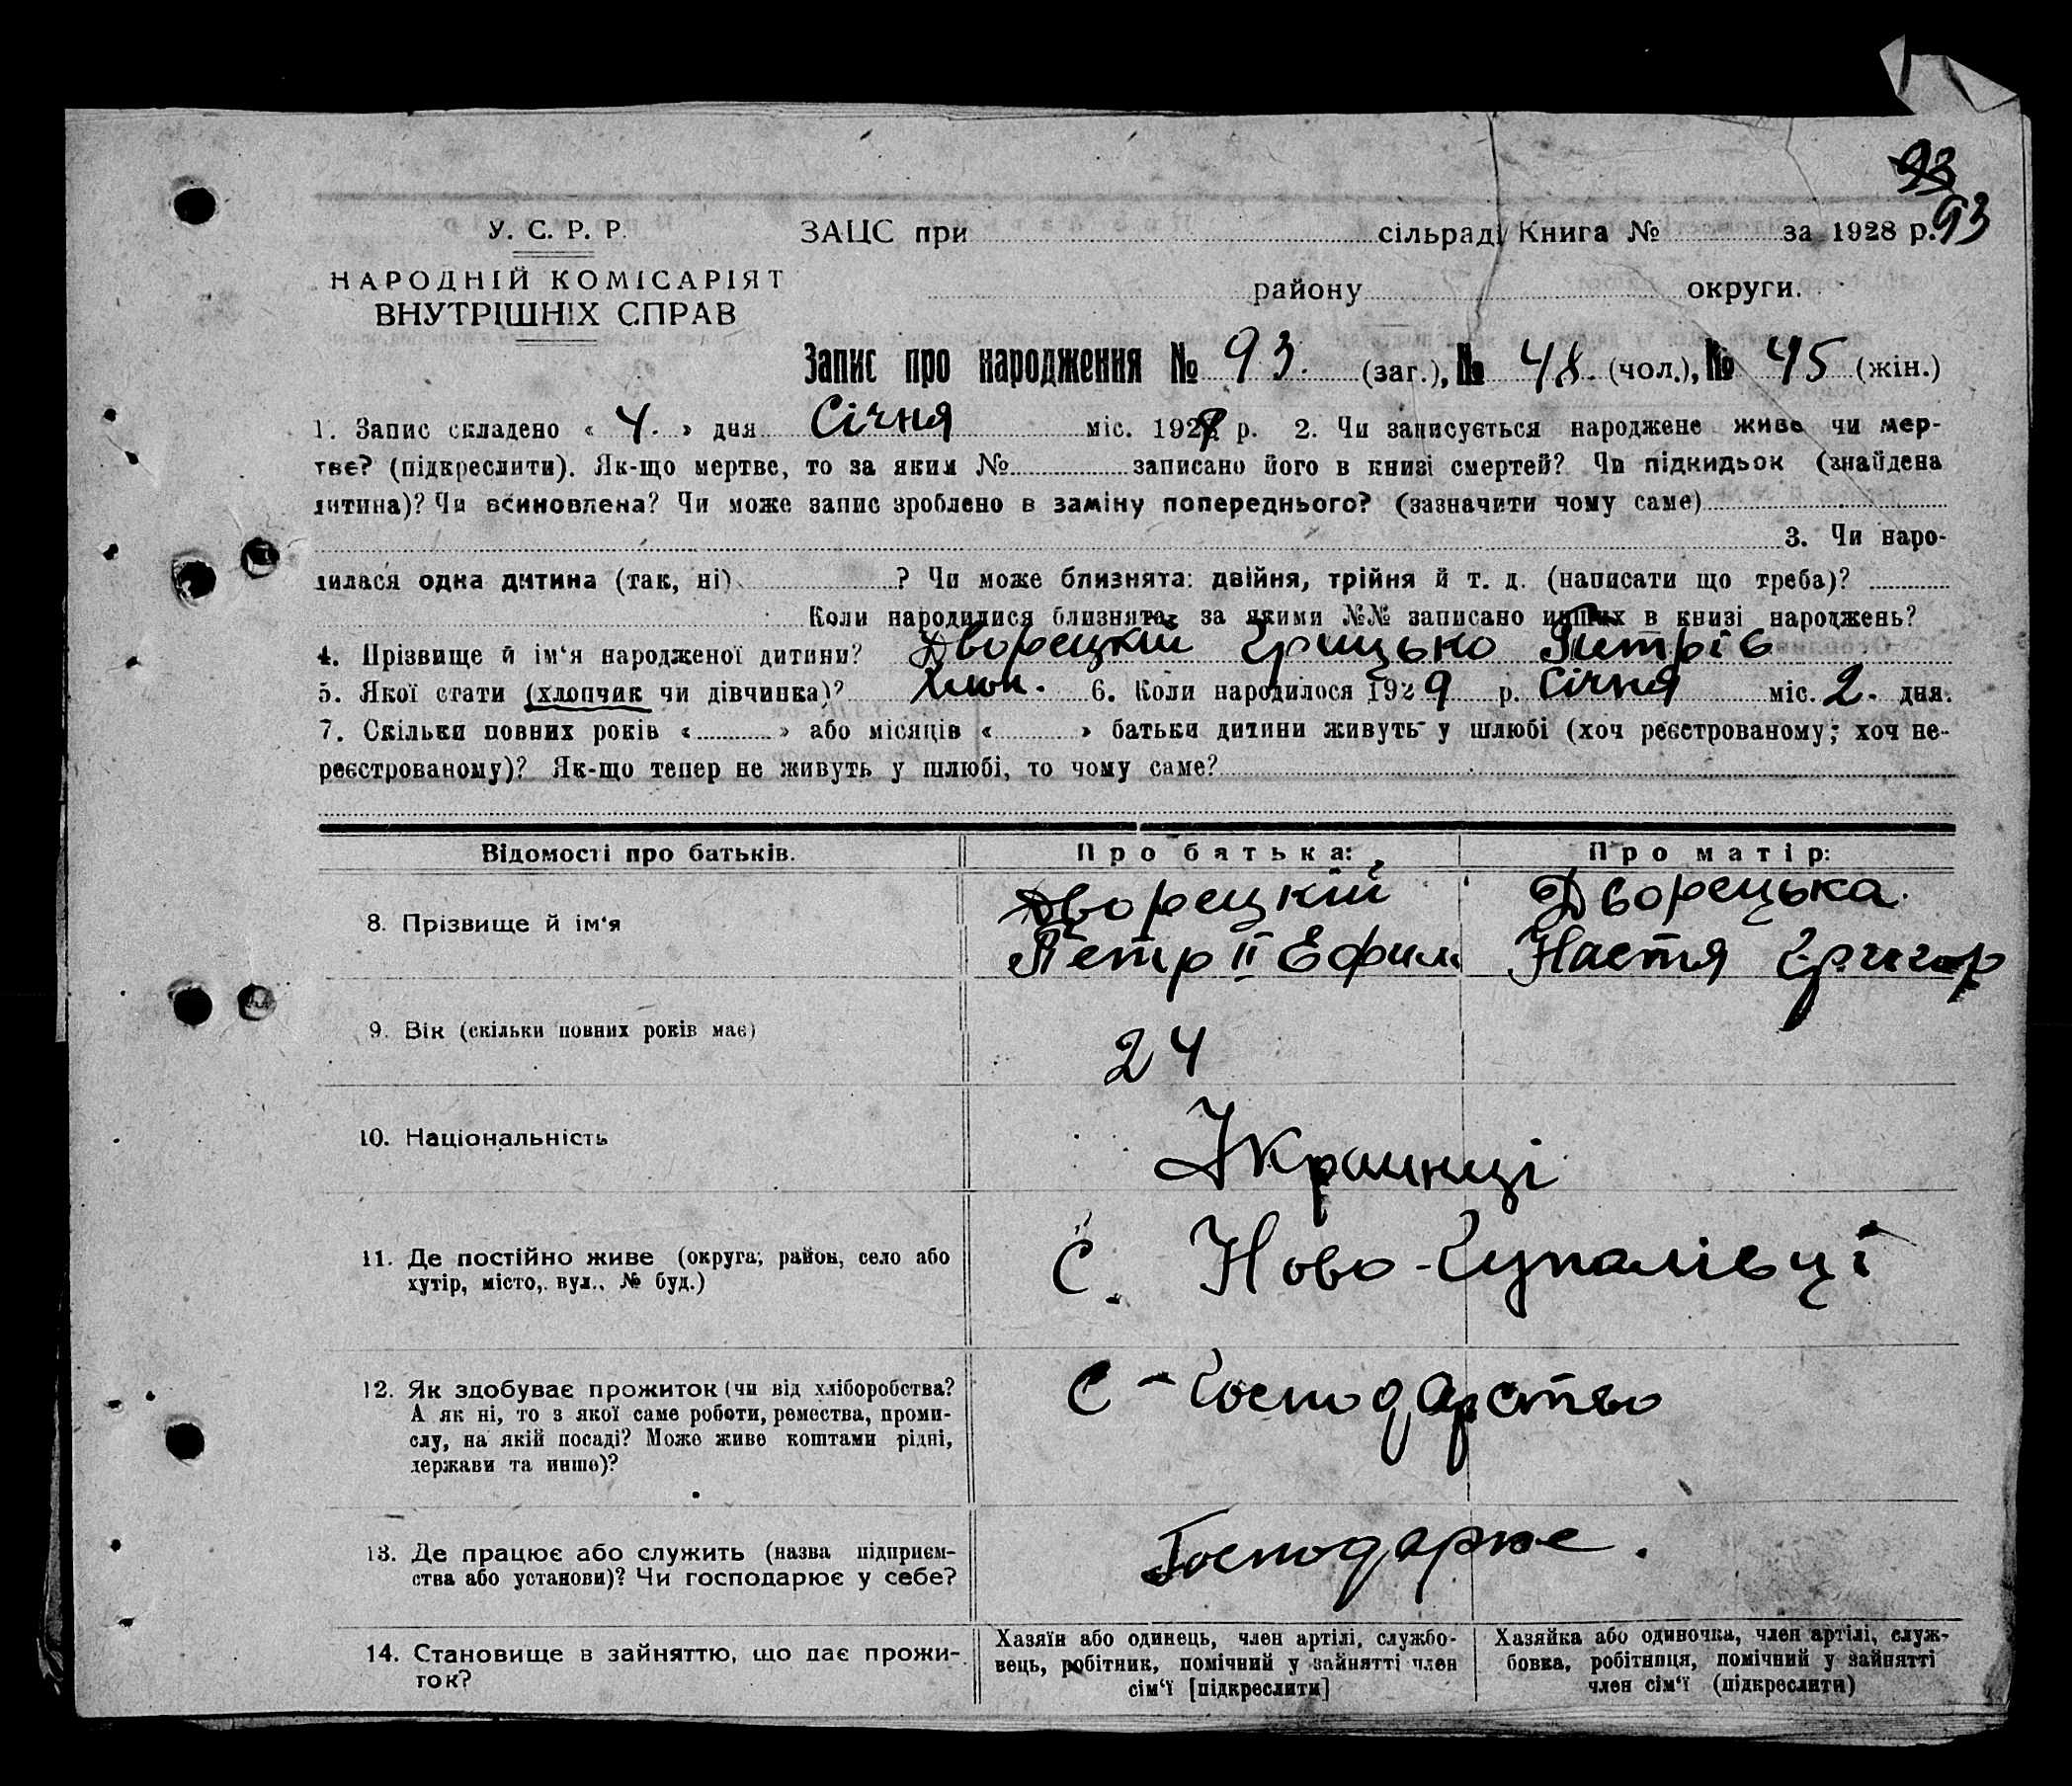 93
93
У. С. Р. Р.
НАРОДНІЙ КОМІСАРІЯТ
ВНУТРІШНІХ СПРАВ
ЗАЦС при сільраді Книга № за 1928 р.
району округи.
Запис про народження № 93. (заг.), № 48. (чол.), № 45 (жін.)
1. Запис складено « 4. » дня Січня міс. 1929 р. 2. Чи записується народжене живе чи мер-
тве? (підкреслити). Як-що мертве, то за яким № записано його в книзі смертей? Чи підкидьок (знайдена
дитина)? Чи всиновлена? Чи може запис зроблено в заміну попереднього? (зазначити чому саме)
3. Чи наро-
дилася одна дитина (так, ні) ? Чи може близнята: двійня, трійня й т. д. (написати що треба)?
Коли народилися близнята, за якими №№ записано инших в книзі народжень?
4. Прізвище й ім'я народженої дитини? Дворецкій Грицько Петрів
5. Якої стати (хлопчик чи дівчинка)? Хлоп. 6. Коли народилося 1929 р. Січня міс. 2. дня.
7. Скільки повних років « » або місяців « » батьки дитини живуть у шлюбі (хоч реєстрованому; хоч не-
реєстрованому)? Як-що тепер не живуть у шлюбі, то чому саме?
Відомості про батьків. Про батька: Про матір:
8. Прізвище й ім'я Дворецкій Дворецька.
Петр II Ефим Настя Григор
9. Вік (скільки повних років має) 24
10. Національність Украинці
11. Де постійно живе (округа, район, село або С. Ново-
хутір, місто, вул., № буд.)
12. Як здобуває прожиток (чи від хліборобства? С-Господарство
А як ні, то з якої саме роботи, ремества, проми-
слу, на якій посаді? Може живе коштами рідні,
держави та инше)?
13. Де працює або служить (назва підприєм- Господарює.
ства або установи)? Чи господарює у себе?
14. Становище в зайняттю, що дає прожи- Хазяїн або одинець, член артілі, службо- Хазяйка або одиночка, член артілі, служ-
ток? вець, робітник, помічний у зайнятті член бовка, робітниця, помічний у зайнятті
сім'ї [підкреслити] член сім'ї (підкреслити)